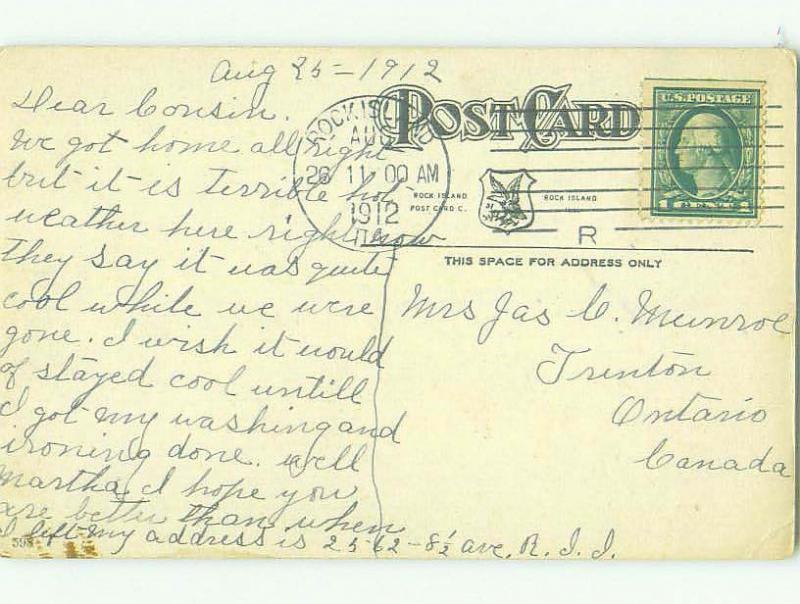 Aug 25 – 1912
Dear Cousin.
We got home all right
but it is terrible hot
weather here right now
they say it was quite
cool while we were
gone. I wish it would
of stayed cool untill
I got my washing and
ironing done. well
Martha I hope you
are better than when
I left my address is 2562–8½ ave. R. I. I.
POST CARD
ROCK ISLAND
AUG
26 11 00 AM
1912
ILL.
U.S. POSTAGE
1 CENT 1
ROCK ISLAND
POST CARD C.
ROCK ISLAND
R
THIS SPACE FOR ADDRESS ONLY
Mrs Jas C. Munroe
Trenton
Ontario
Canada